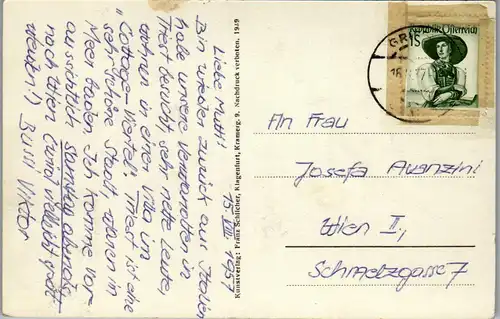 15. VIII. 1951
Liebe Mutti!
Bin wieder zurück aus Italien
habe unsere Verwandten in
Triest besucht, sehr nette Leute,
wohnen in einer Villa im
"Cottage-Viertel". Triest ist eine
sehr schöne Stadt, waren im
Meer baden. Ich komme vor-
aussichtlich Samstag abends
nach Wien (wenn vielleicht
Bussi Viktor
Kunstverlag: Franz Schilcher, Klagenfurt, Kramerg. 9. Nachdruck verboten. 1949
GRI
1S
Republik Österreich
An Frau
Josefa Avanzini
Wien II.,
Schmelzgasse 7